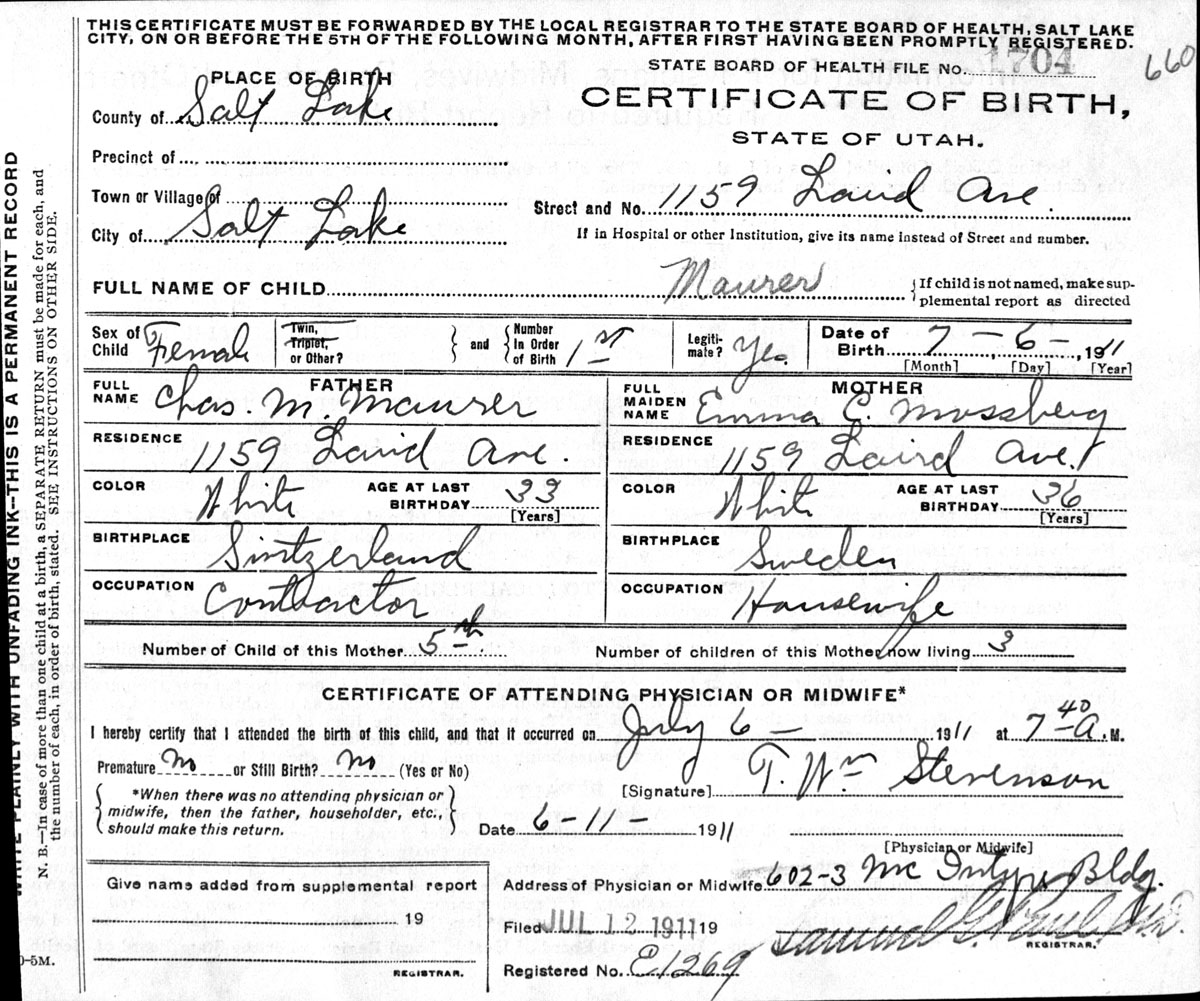 THIS CERTIFICATE MUST BE FORWARDED BY THE LOCAL REGISTRAR TO THE STATE BOARD OF HEALTH, SALT LAKE
CITY, ON OR BEFORE THE 5TH OF THE FOLLOWING MONTH, AFTER FIRST HAVING BEEN PROMPTLY REGISTERED.
STATE BOARD OF HEALTH FILE NO. 1704 660
PLACE OF BIRTH
CERTIFICATE OF BIRTH,
County of Salt Lake
STATE OF UTAH.
Precinct of
Town or Village of
Street and No. 1159 Laird Ave.
City of Salt Lake
If in Hospital or other Institution, give its name instead of Street and number.
FULL NAME OF CHILD Maurer {If child is not named, make sup-
plemental report as directed
Sex of Child Female
Twin, Triplet, or Other? } and { Number In Order of Birth 1st
Legiti-mate? Yes.
Date of Birth 7 - 6 -, 1911
[Month] [Day] [Year]
FATHER
FULL NAME Chas. M. Maurer
RESIDENCE 1159 Laird Ave.
COLOR White AGE AT LAST BIRTHDAY 33
[Years]
BIRTHPLACE Switzerland
OCCUPATION Contractor
MOTHER
FULL MAIDEN NAME Emma C. Mossberg
RESIDENCE 1159 Laird Ave.
COLOR White AGE AT LAST BIRTHDAY 36
[Years]
BIRTHPLACE Sweden
OCCUPATION Housewife
Number of Child of this Mother 5th Number of children of this Mother now living 3
CERTIFICATE OF ATTENDING PHYSICIAN OR MIDWIFE*
I hereby certify that I attended the birth of this child, and that it occurred on July 6 - 1911 at 7 40 A.M.
Premature No or Still Birth? No (Yes or No)
[Signature] T. Wm Stevenson
{ *When there was no attending physician or
midwife, then the father, householder, etc.,
should make this return. }
Date 6-11- 1911
[Physician or Midwife]
Give name added from supplemental report
19
REGISTRAR.
Address of Physician or Midwife 602-3 McIntyre Bldg.
Filed JUL 12 1911 19
REGISTRAR.
Registered No. E1269
WRITE PLAINLY WITH UNFADING INK--THIS IS A PERMANENT RECORD
N. B.—In case of more than one child at a birth, a SEPARATE RETURN must be made for each, and
the number of each, in order of birth, stated. SEE INSTRUCTIONS ON OTHER SIDE.
0-5M.